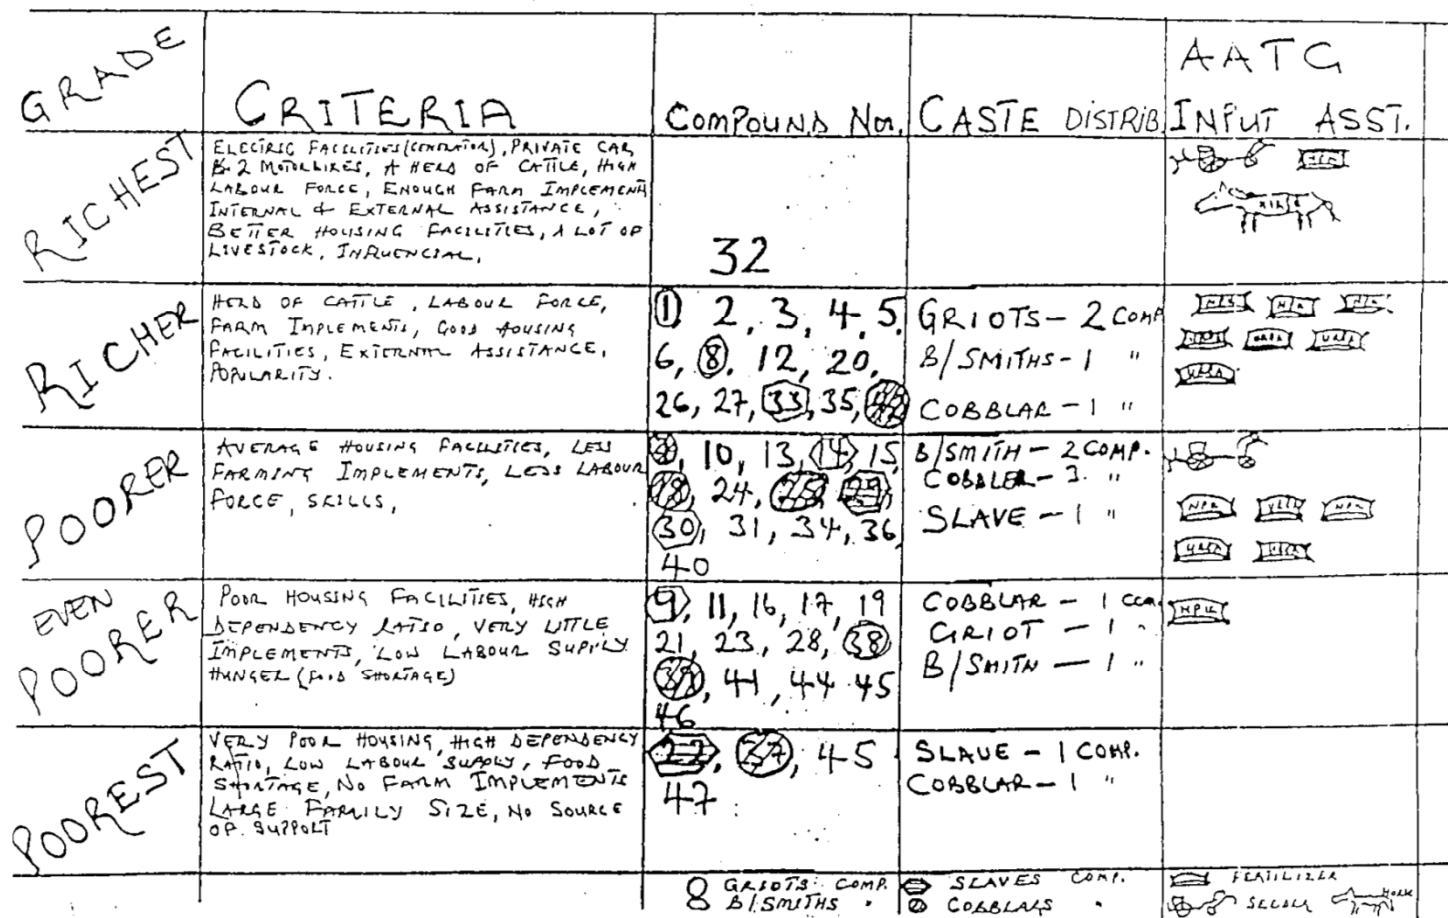 GRADE
CRITERIA
COMPOUND Nos.
CASTE DISTRIB.
AATG
INPUT ASST.
RICHEST
ELECTRIC FACILITIES (GENERATOR), PRIVATE CAR
& 2 MOTORBIKES, A HERD OF CATTLE, HIGH
LABOUR FORCE, ENOUGH FARM IMPLEMENTS
INTERNAL & EXTERNAL ASSISTANCE,
BETTER HOUSING FACILITIES, A LOT OF
LIVESTOCK, INFLUENCIAL,
32
RICHER
HERD OF CATTLE, LABOUR FORCE,
FARM IMPLEMENTS, GOOD HOUSING
FACILITIES, EXTERNAL ASSISTANCE,
POPULARITY.
1, 2, 3, 4, 5,
6, 8, 12, 20,
26, 27, 33, 35,
GRIOTS - 2 COMP
B/SMITHS - 1 "
COBBLAR - 1 "
UREA
UREA
UREA
POORER
AVERAGE HOUSING FACILITIES, LESS
FARMING IMPLEMENTS, LESS LABOUR
FORCE, SKILLS,
10, 13, 14, 15,
18, 24, 25, 29,
30, 31, 34, 36,
40
B/SMITH - 2 COMP.
COBBLER - 3 "
SLAVE - 1 "
NPK UREA NPK
UREA UREA
EVEN
POORER
POOR HOUSING FACILITIES, HIGH
DEPENDENCY RATIO, VERY LITTLE
IMPLEMENTS, LOW LABOUR SUPPLY
HUNGER (FOOD SHORTAGE)
9, 11, 16, 17, 19
21, 23, 28, 38
39, 41, 44 45
46
COBBLAR - 1 COM.
GRIOT - 1 "
B/SMITH - 1 "
NPK
POOREST
VERY POOR HOUSING, HIGH DEPENDENCY
RATIO, LOW LABOUR SUPPLY, FOOD
SHORTAGE, NO FARM IMPLEMENTS
LARGE FAMILY SIZE, NO SOURCE
OF SUPPORT
22, 37, 45
47
SLAVE - 1 COMP.
COBBLAR - 1 "
GRIOTS COMP.
B/SMITHS "
SLAVES COMP.
COBBLARS "
FERTILIZER
SEEDER